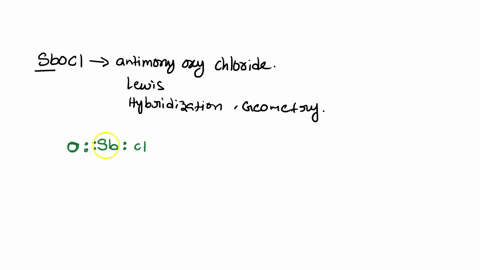 SbOCl → antimony oxy chloride.
Lewis
Hybridization, Geometry.
O::Sb: Cl